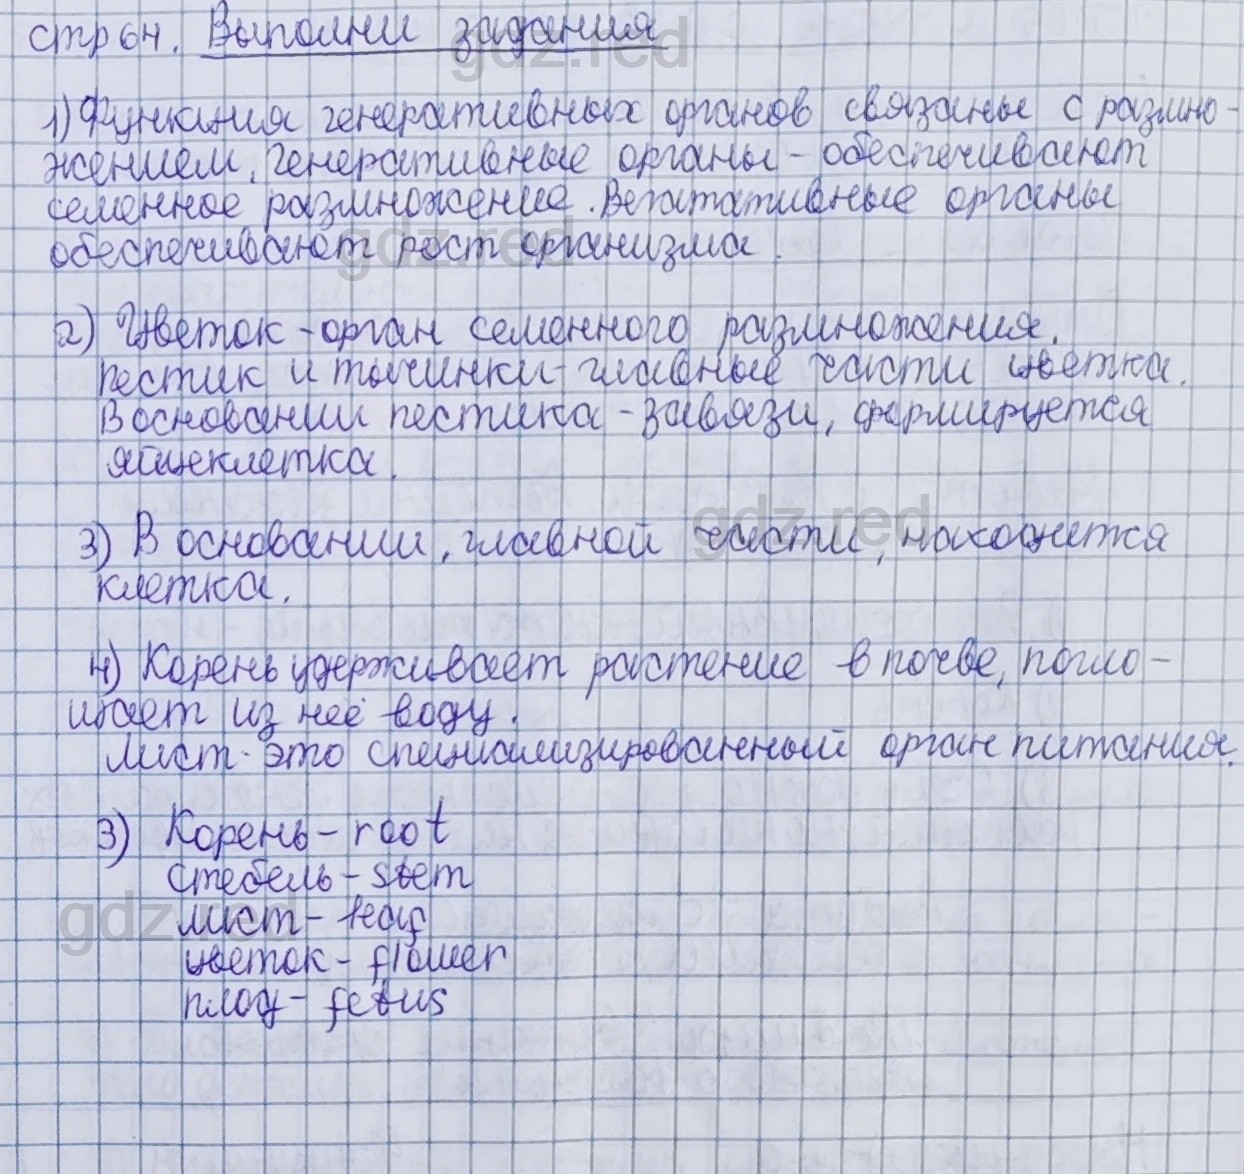 стр 64. Выполни задания
1) Функция генеративных органов связаны с размно-
жением, генеративные органы - обеспечивают
семенное размножение. Вегатативные органы
обеспечивают рост организма.
2) Цветок - орган семенного размножения.
пестик и тычинки - главные части цветка.
В основании пестика - завязи, формируется
яйцеклетка.
3) В основании, главной части, находится
клетка.
4) Корень удерживает растение в почве, погло-
щает из неё воду.
Лист - это специализированный орган питания.
3) Корень - root
стебель - stem
лист - leaf
цветок - flower
плод - fetus
gdz.red
gdz.red
gdz.red
gdz.red